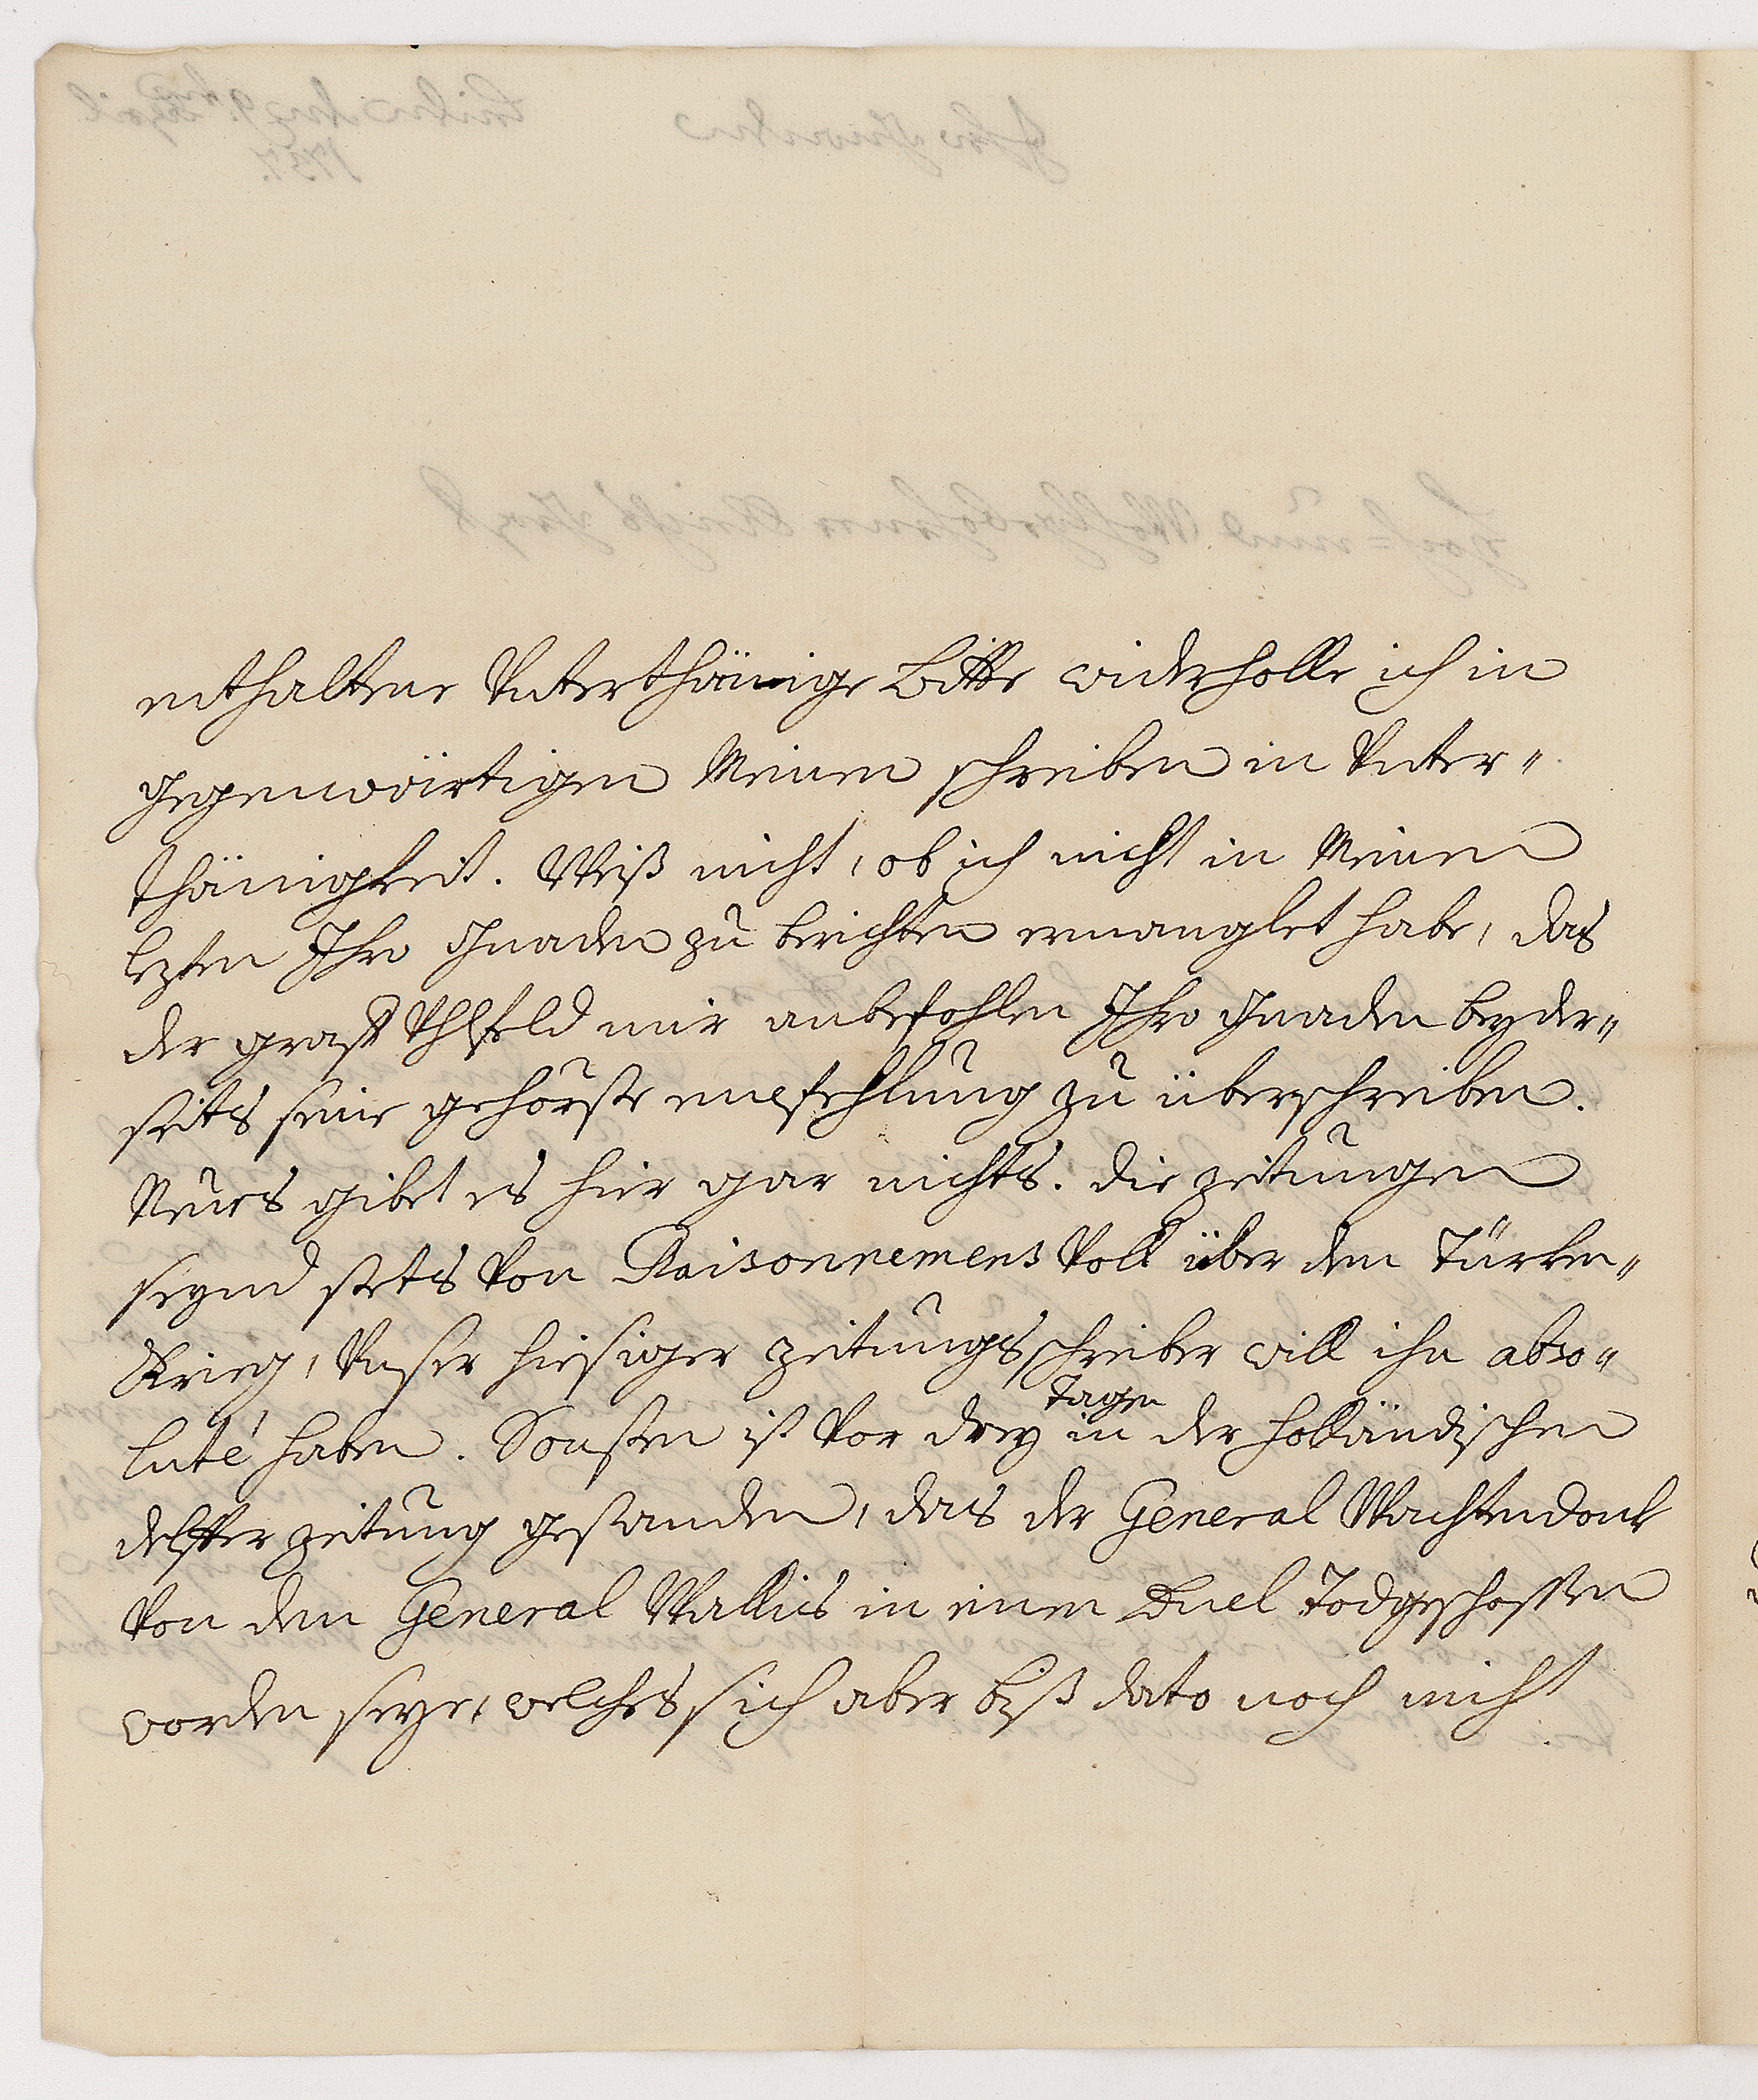 enthaltene Unterthänige Bitte widerholle ich in
gegenwärtigen Meinen schreiben in Unter=
thänigkeit. Weiß nicht, ob ich nicht in Meinen
lezten Ihro Gnaden zu berichten ermanglet habe, das
der graff Uhlfeld mir anbefohlen Ihro Gnaden beyder=
seits seine gehörste empfehlung zu überschreiben.
Neues gibet es hier gar nichts. die zeitungen
seynd stets von Raisonnemens voll über den Türken=
Krieg, Unser hiesiger zeitungsschreiber will ihn abso=
luté haben. Sonsten ist vor drey Tagen in der holländischen
delffter zeitung gestanden, das der General Wachtendonk
von dem General Wallis in einen Duel Todgeschossen
worden seye, welches sich aber biß dato noch nicht